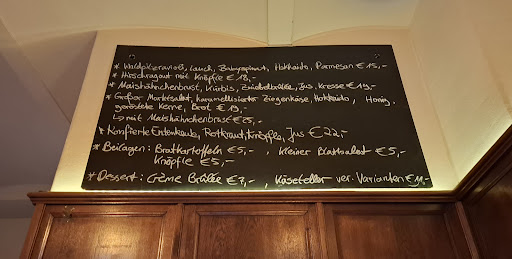 * Waldpilzravioli, Lauch, Babyspinat, Hokkaido, Parmesan € 15,-
* Hirschragout mit Knöpfle € 18,-
* Maishähnchenbrust, Kürbis, Jus, Kresse € 19,-
* Großer Marktsalat, karamellisierter Ziegenkäse, Hokkaido, Honig,
geröstete Kerne, Brot € 19,-
↳ mit Maishähnchenbrust € 25,-
* Konfierte Entenkeule, Rotkraut, Knöpfle, Jus € 22,-
* Beilagen: Bratkartoffeln € 5,-, kleiner Blattsalat € 5,-
Knöpfle € 5,-
* Dessert: Crème Brûlée € 7,-, Käseteller ver. Varianten € 11,-